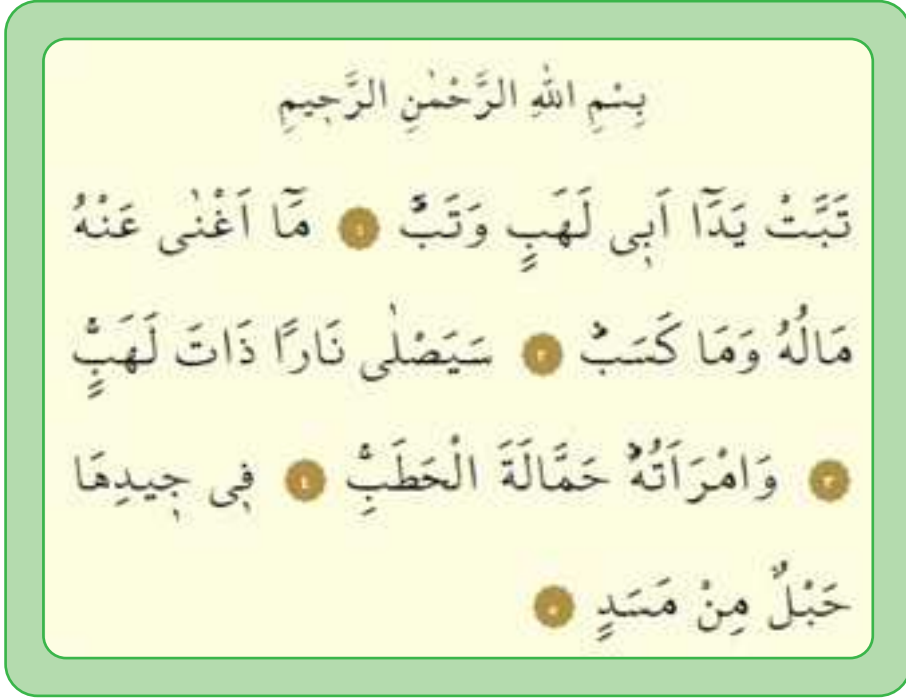 بِسْمِ اللّٰهِ الرَّحْمٰنِ الرَّح۪يمِ
تَبَّتْ يَدَٓا اَب۪ى لَهَبٍ وَتَبَّۜ ١ مَٓا اَغْنٰى عَنْهُ
مَالُهُ وَمَا كَسَبَۜ ٢ سَيَصْلٰى نَارًا ذَاتَ لَهَبٍۚ
٣ وَامْرَاَتُهُۜ حَمَّالَةَ الْحَطَبِۚ ٤ ف۪ى ج۪يدِهَا
حَبْلٌ مِنْ مَسَدٍ ٥